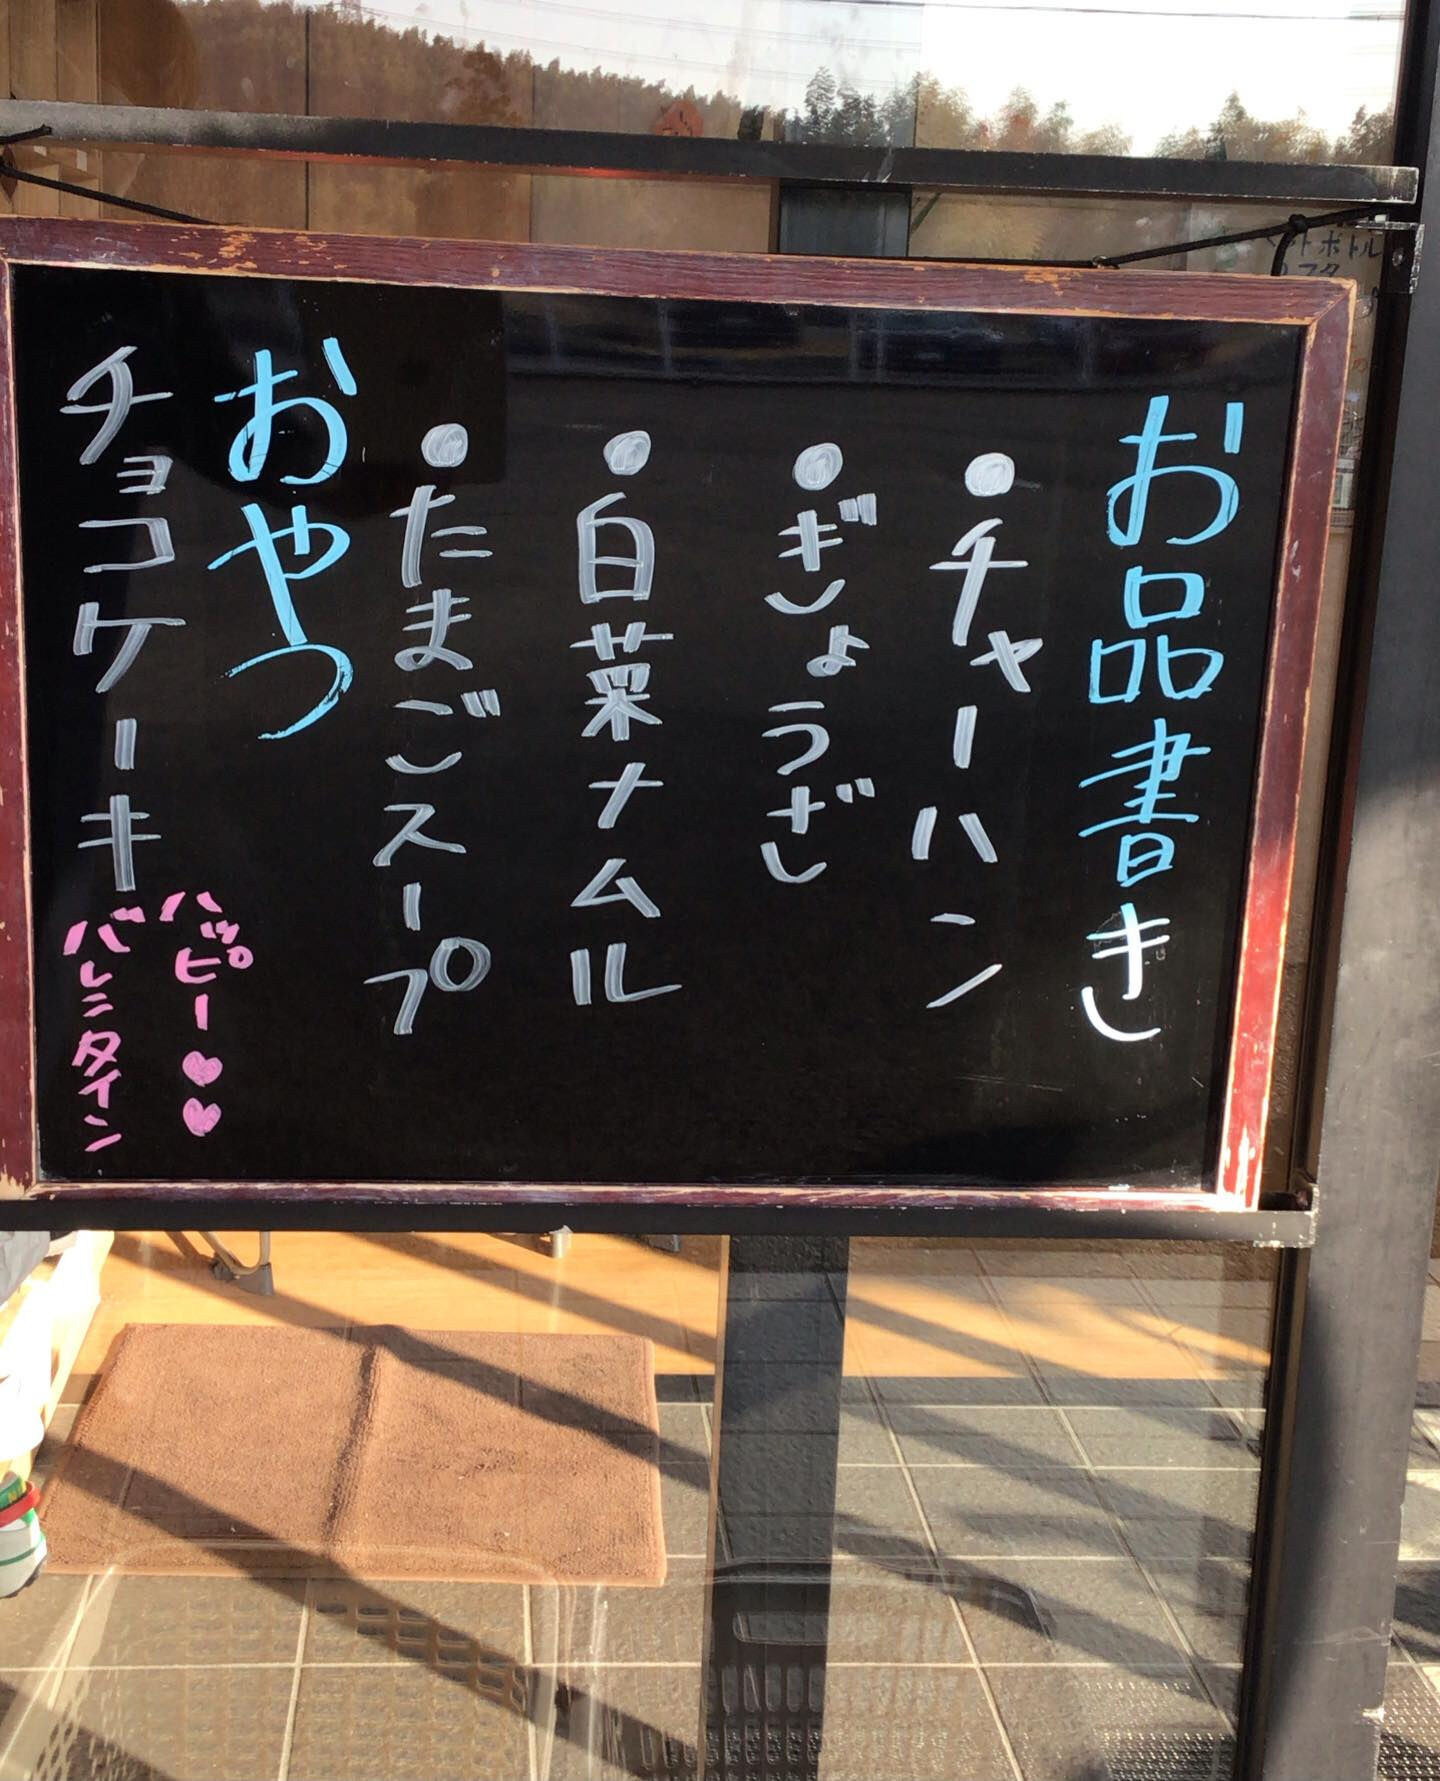 お品書き
●チャーハン
●ぎょうざ
●白菜ナムル
●たまごスープ
おやつ
チョコケーキ
ハッピー♥♥
バレンタイン
ボトル